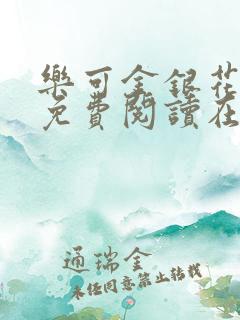 樂可金銀花
免費閱讀在
通瑞金
未經同意禁止轉載